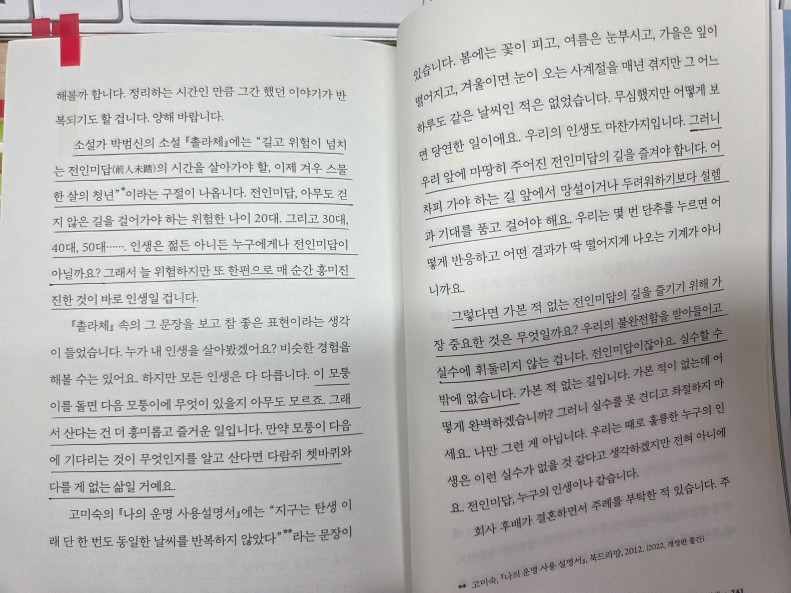 해볼까 합니다. 정리하는 시간인 만큼 그간 했던 이야기가 반
복되기도 할 겁니다. 양해 바랍니다.
소설가 박범신의 소설 『촐라체』에는 “길고 위험이 넘치
는 전인미답(前人未踏)의 시간을 살아가야 할, 이제 겨우 스물
한 살의 청년”*이라는 구절이 나옵니다. 전인미답, 아무도 걷
지 않은 길을 걸어가야 하는 위험한 나이 20대. 그리고 30대,
40대, 50대……. 인생은 젊든 아니든 누구에게나 전인미답이
아닐까요? 그래서 늘 위험하지만 또 한편으로 매 순간 흥미진
진한 것이 바로 인생일 겁니다.
『촐라체』 속의 그 문장을 보고 참 좋은 표현이라는 생각
이 들었습니다. 누가 내 인생을 살아봤겠어요? 비슷한 경험을
해볼 수는 있어요. 하지만 모든 인생은 다 다릅니다. 이 모퉁
이를 돌면 다음 모퉁이에 무엇이 있을지 아무도 모르죠. 그래
서 산다는 건 더 흥미롭고 즐거운 일입니다. 만약 모퉁이 다음
에 기다리는 것이 무엇인지를 알고 산다면 다람쥐 쳇바퀴와
다를 게 없는 삶일 거예요.
고미숙의 『나의 운명 사용설명서』에는 “지구는 탄생 이
래 단 한 번도 동일한 날씨를 반복하지 않았다”**라는 문장이
있습니다. 봄에는 꽃이 피고, 여름은 눈부시고, 가을은 잎이
떨어지고, 겨울이면 눈이 오는 사계절을 매년 겪지만 그 어느
하루도 같은 날씨인 적은 없었습니다. 무심했지만 어떻게 보
면 당연한 일이에요. 우리의 인생도 마찬가지입니다. 그러니
우리 앞에 마땅히 주어진 전인미답의 길을 즐겨야 합니다. 어
차피 가야 하는 길 앞에서 망설이거나 두려워하기보다 설렘
과 기대를 품고 걸어야 해요. 우리는 몇 번 단추를 누르면 어
떻게 반응하고 어떤 결과가 딱 떨어지게 나오는 기계가 아니
니까요.
그렇다면 가본 적 없는 전인미답의 길을 즐기기 위해 가
장 중요한 것은 무엇일까요? 우리의 불완전함을 받아들이고
실수에 휘둘리지 않는 겁니다. 전인미답이잖아요. 실수할 수
밖에 없습니다. 가본 적 없는 길입니다. 가본 적이 없는데 어
떻게 완벽하겠습니까? 그러니 실수를 못 견디고 좌절하지 마
세요. 나만 그런 게 아닙니다. 우리는 때로 훌륭한 누구의 인
생은 이런 실수가 없을 것 같다고 생각하겠지만 전혀 아니에
요. 전인미답, 누구의 인생이나 같습니다.
회사 후배가 결혼하면서 주례를 부탁한 적 있습니다. 주
** 고미숙, 『나의 운명 사용 설명서』, 북드라망, 2012. (2022, 개정판 출간)
241